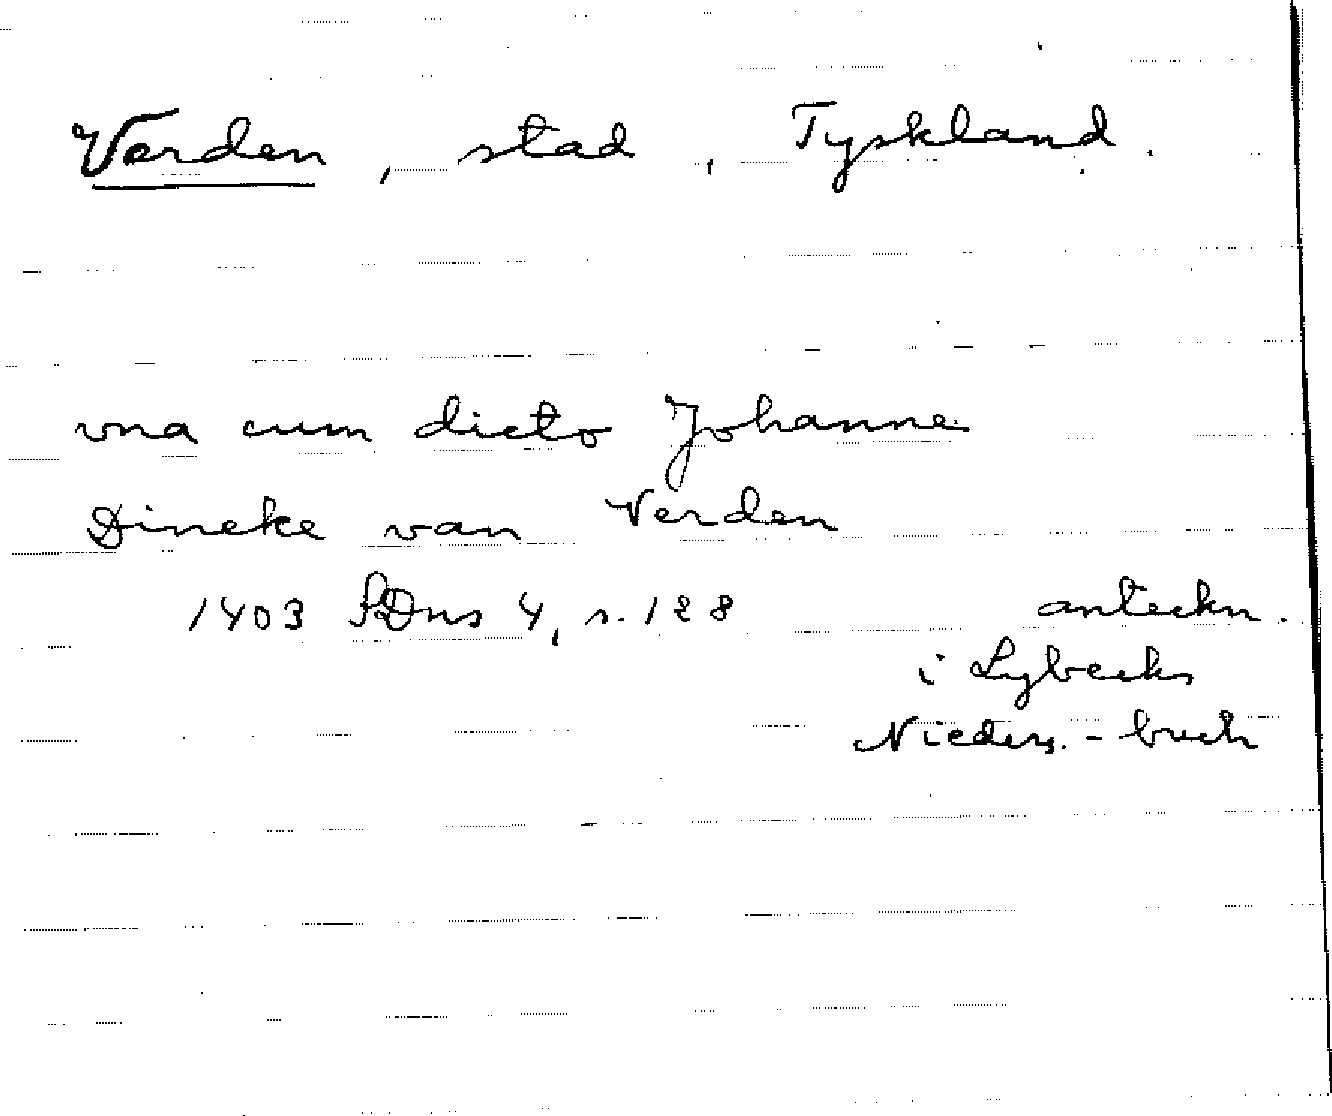 Verden, stad, Tyskland.
vna cum dicto Johanne
Dineke van Verden
1403 SDns 4, s. 128 anteckn.
i Lybecks
Nieders.-buch